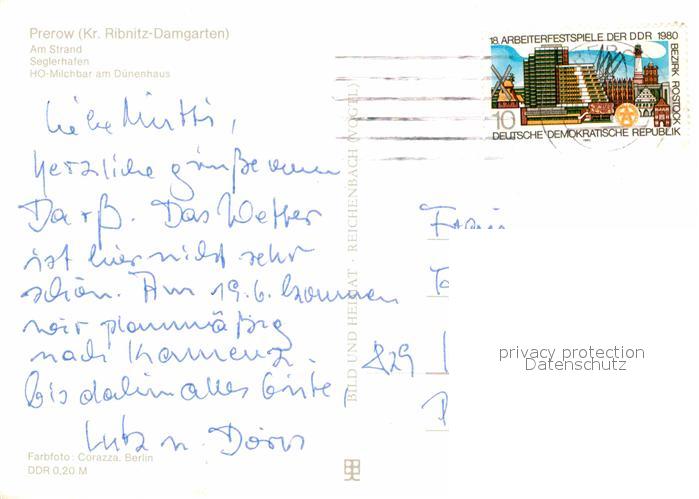 Prerow (Kr. Ribnitz-Damgarten)
Am Strand
Seglerhafen
HO-Milchbar am Dünenhaus
18. ARBEITERFESTSPIELE DER DDR 1980
BEZIRK ROSTOCK
10
DEUTSCHE DEMOKRATISCHE REPUBLIK
Liebe Mutti,
herzliche Grüße vom
Darß. Das Wetter
ist hier nicht sehr
schön. Am 19.6. kommen
wir planmäßig
nach Kamenz.
Bis dahin alles Gute,
Lutz u. Doris
BILD UND HEIMAT · REICHENBACH (VOGTL)
829
privacy protection
Datenschutz
Farbfoto: Corazza, Berlin
DDR 0,20 M